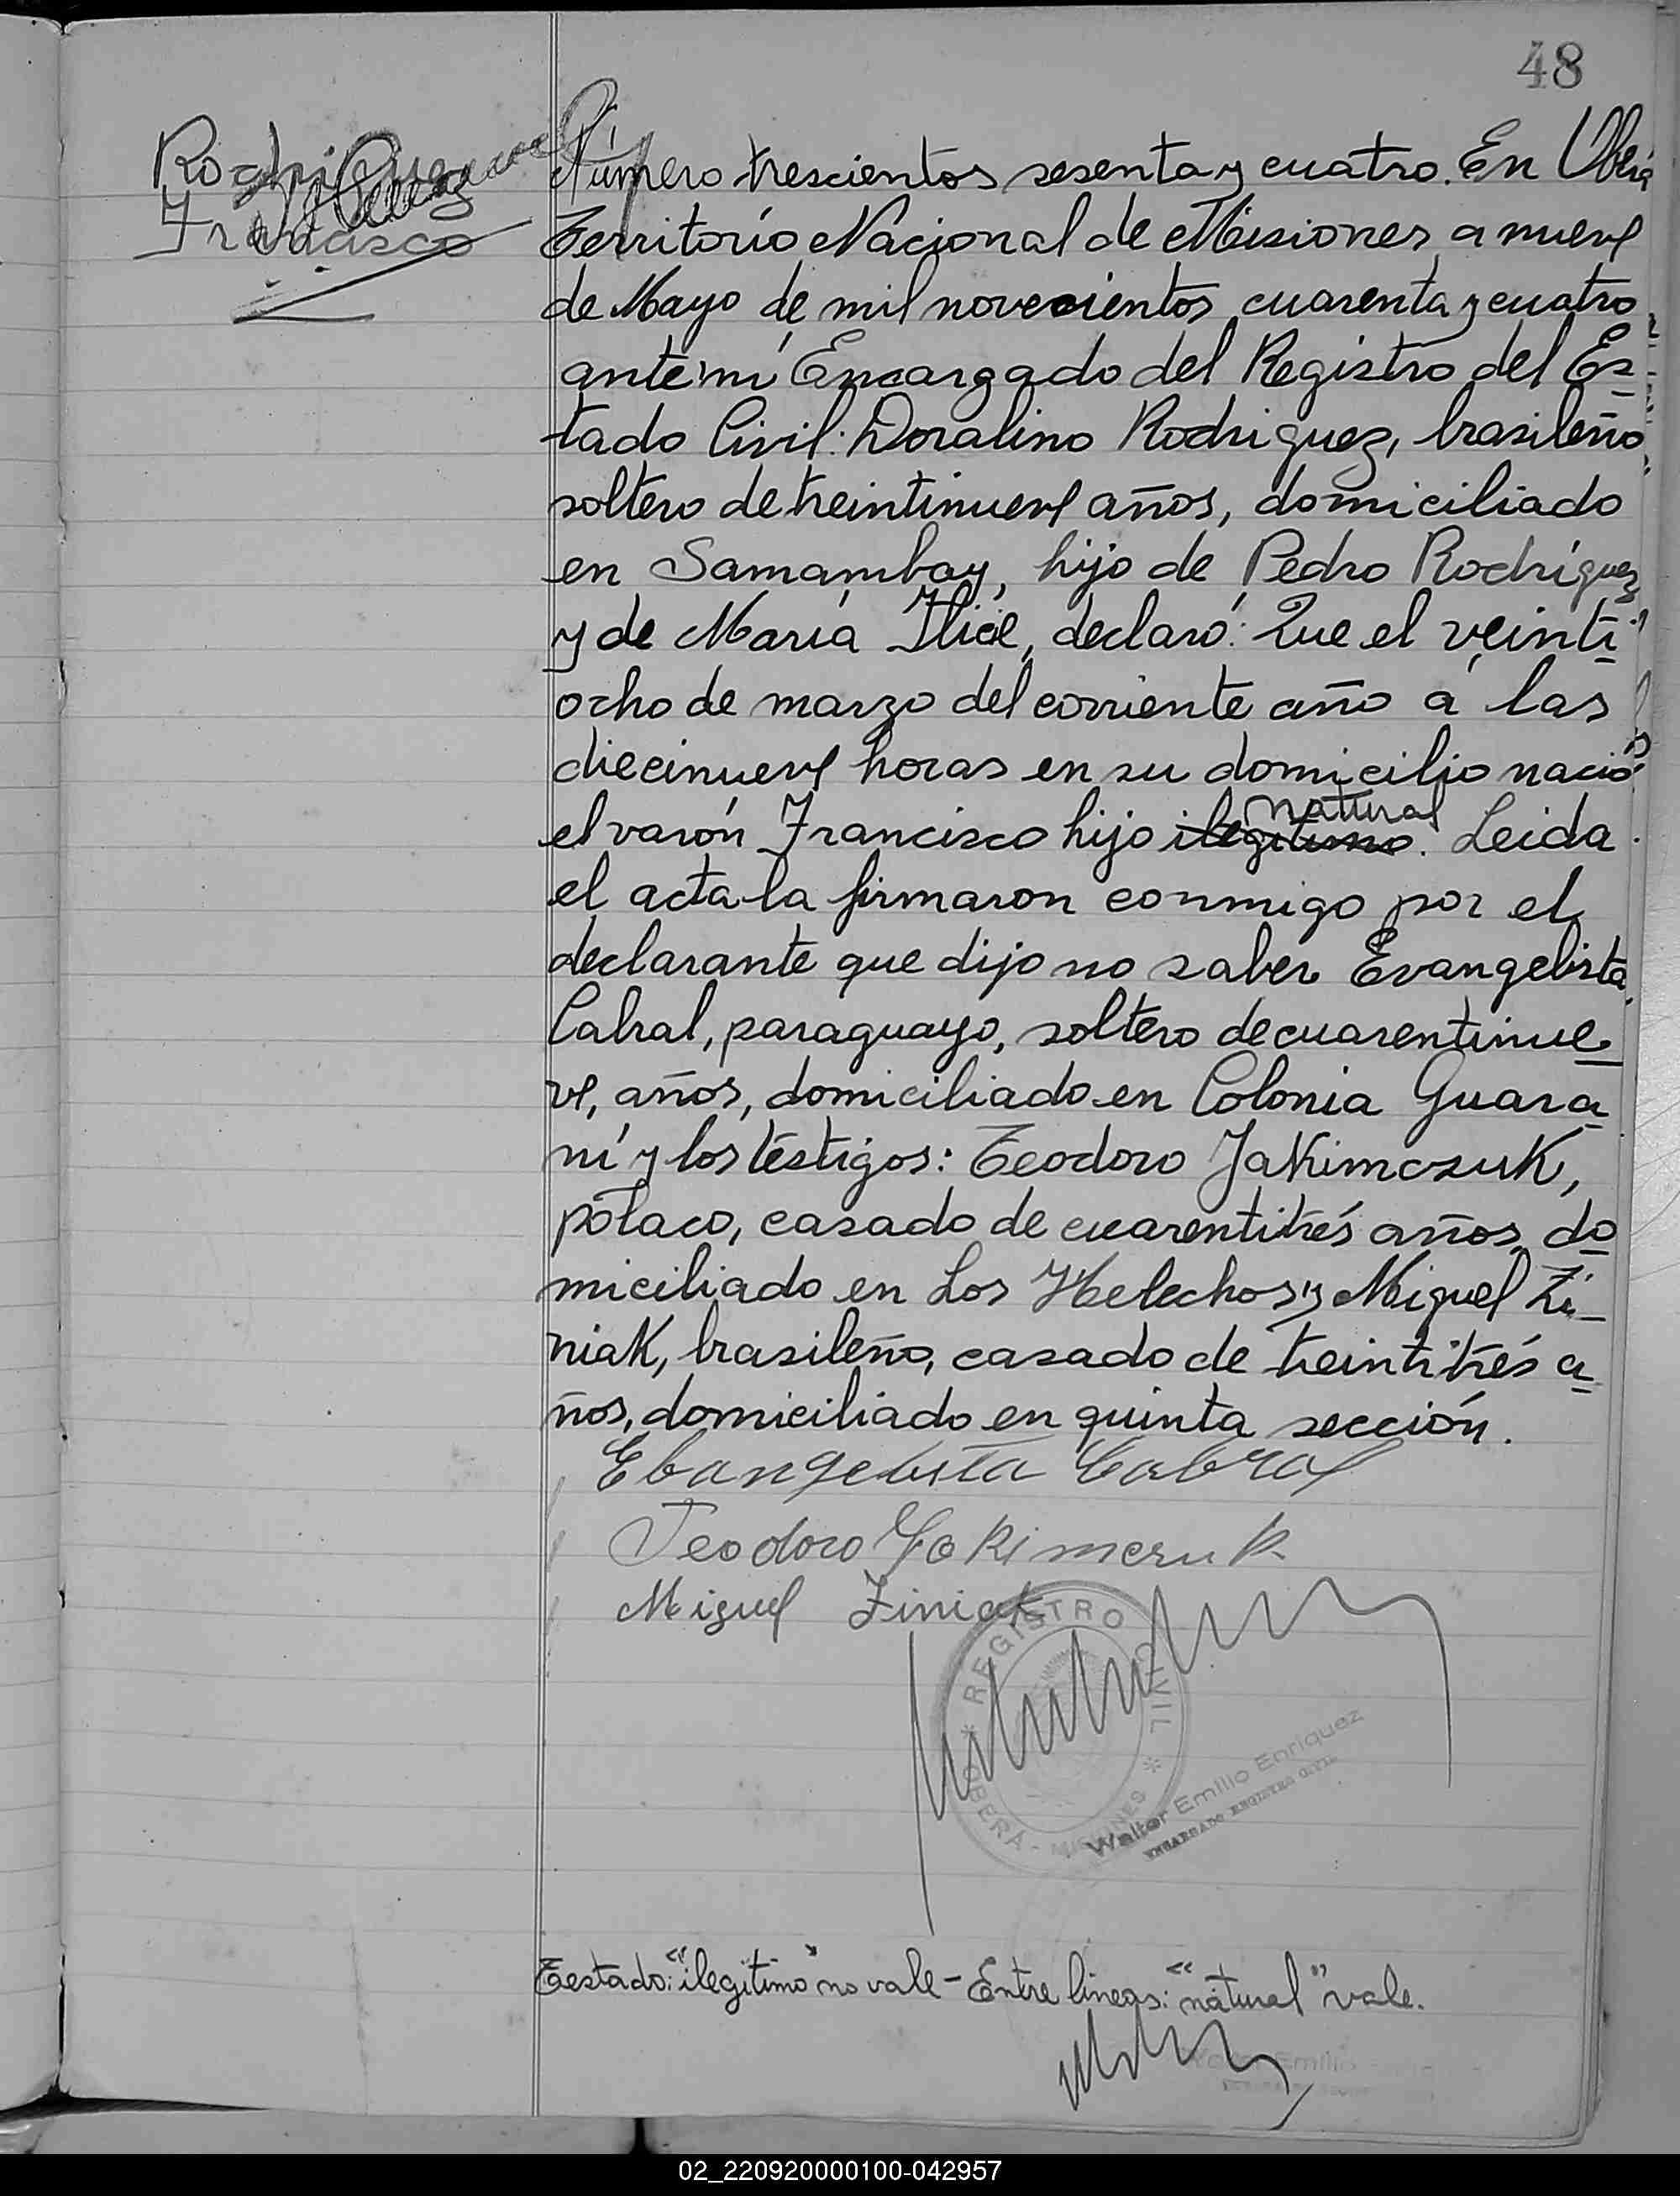 48
Rodriguez
Francisco
Número trescientos sesenta y cuatro. En Oberá
Territorio Nacional de Misiones, a nueve
de Mayo de mil novecientos cuarenta y cuatro
ante mí Encargado del Registro del Es-
tado Civil: Doralino Rodriguez, brasileño
soltero de treintinueve años, domiciliado
en Samambay, hijo de Pedro Rodríguez
y de María Ilice, declaró: Que el veinti-
ocho de marzo del corriente año a las
diecinueve horas en su domicilio nació
natural
el varón Francisco hijo ilegitimo. Leida
el acta la firmaron conmigo por el
declarante que dijo no saber Evangelista
Cabral, paraguayo, soltero de cuarentinue-
ve, años, domiciliado en Colonia Guara-
ní y los testigos: Teodoro Jakimczuk,
polaco, casado de cuarentitrés años, do-
miciliado en Los Helechos y Miguel Zi-
niak, brasileño, casado de treintitrés a-
ños, domiciliado en quinta sección.
Ebangelista Cabral
Teodoro Jakimczuk
Miguel Ziniak
REGISTRO CIVIL
OBERÁ - MISIONES
Walter Emilio Enriquez
ENCARGADO REGISTRO CIVIL
Testado: "ilegitimo" no vale - Entre lineas: "natural" vale.
02_220920000100-042957